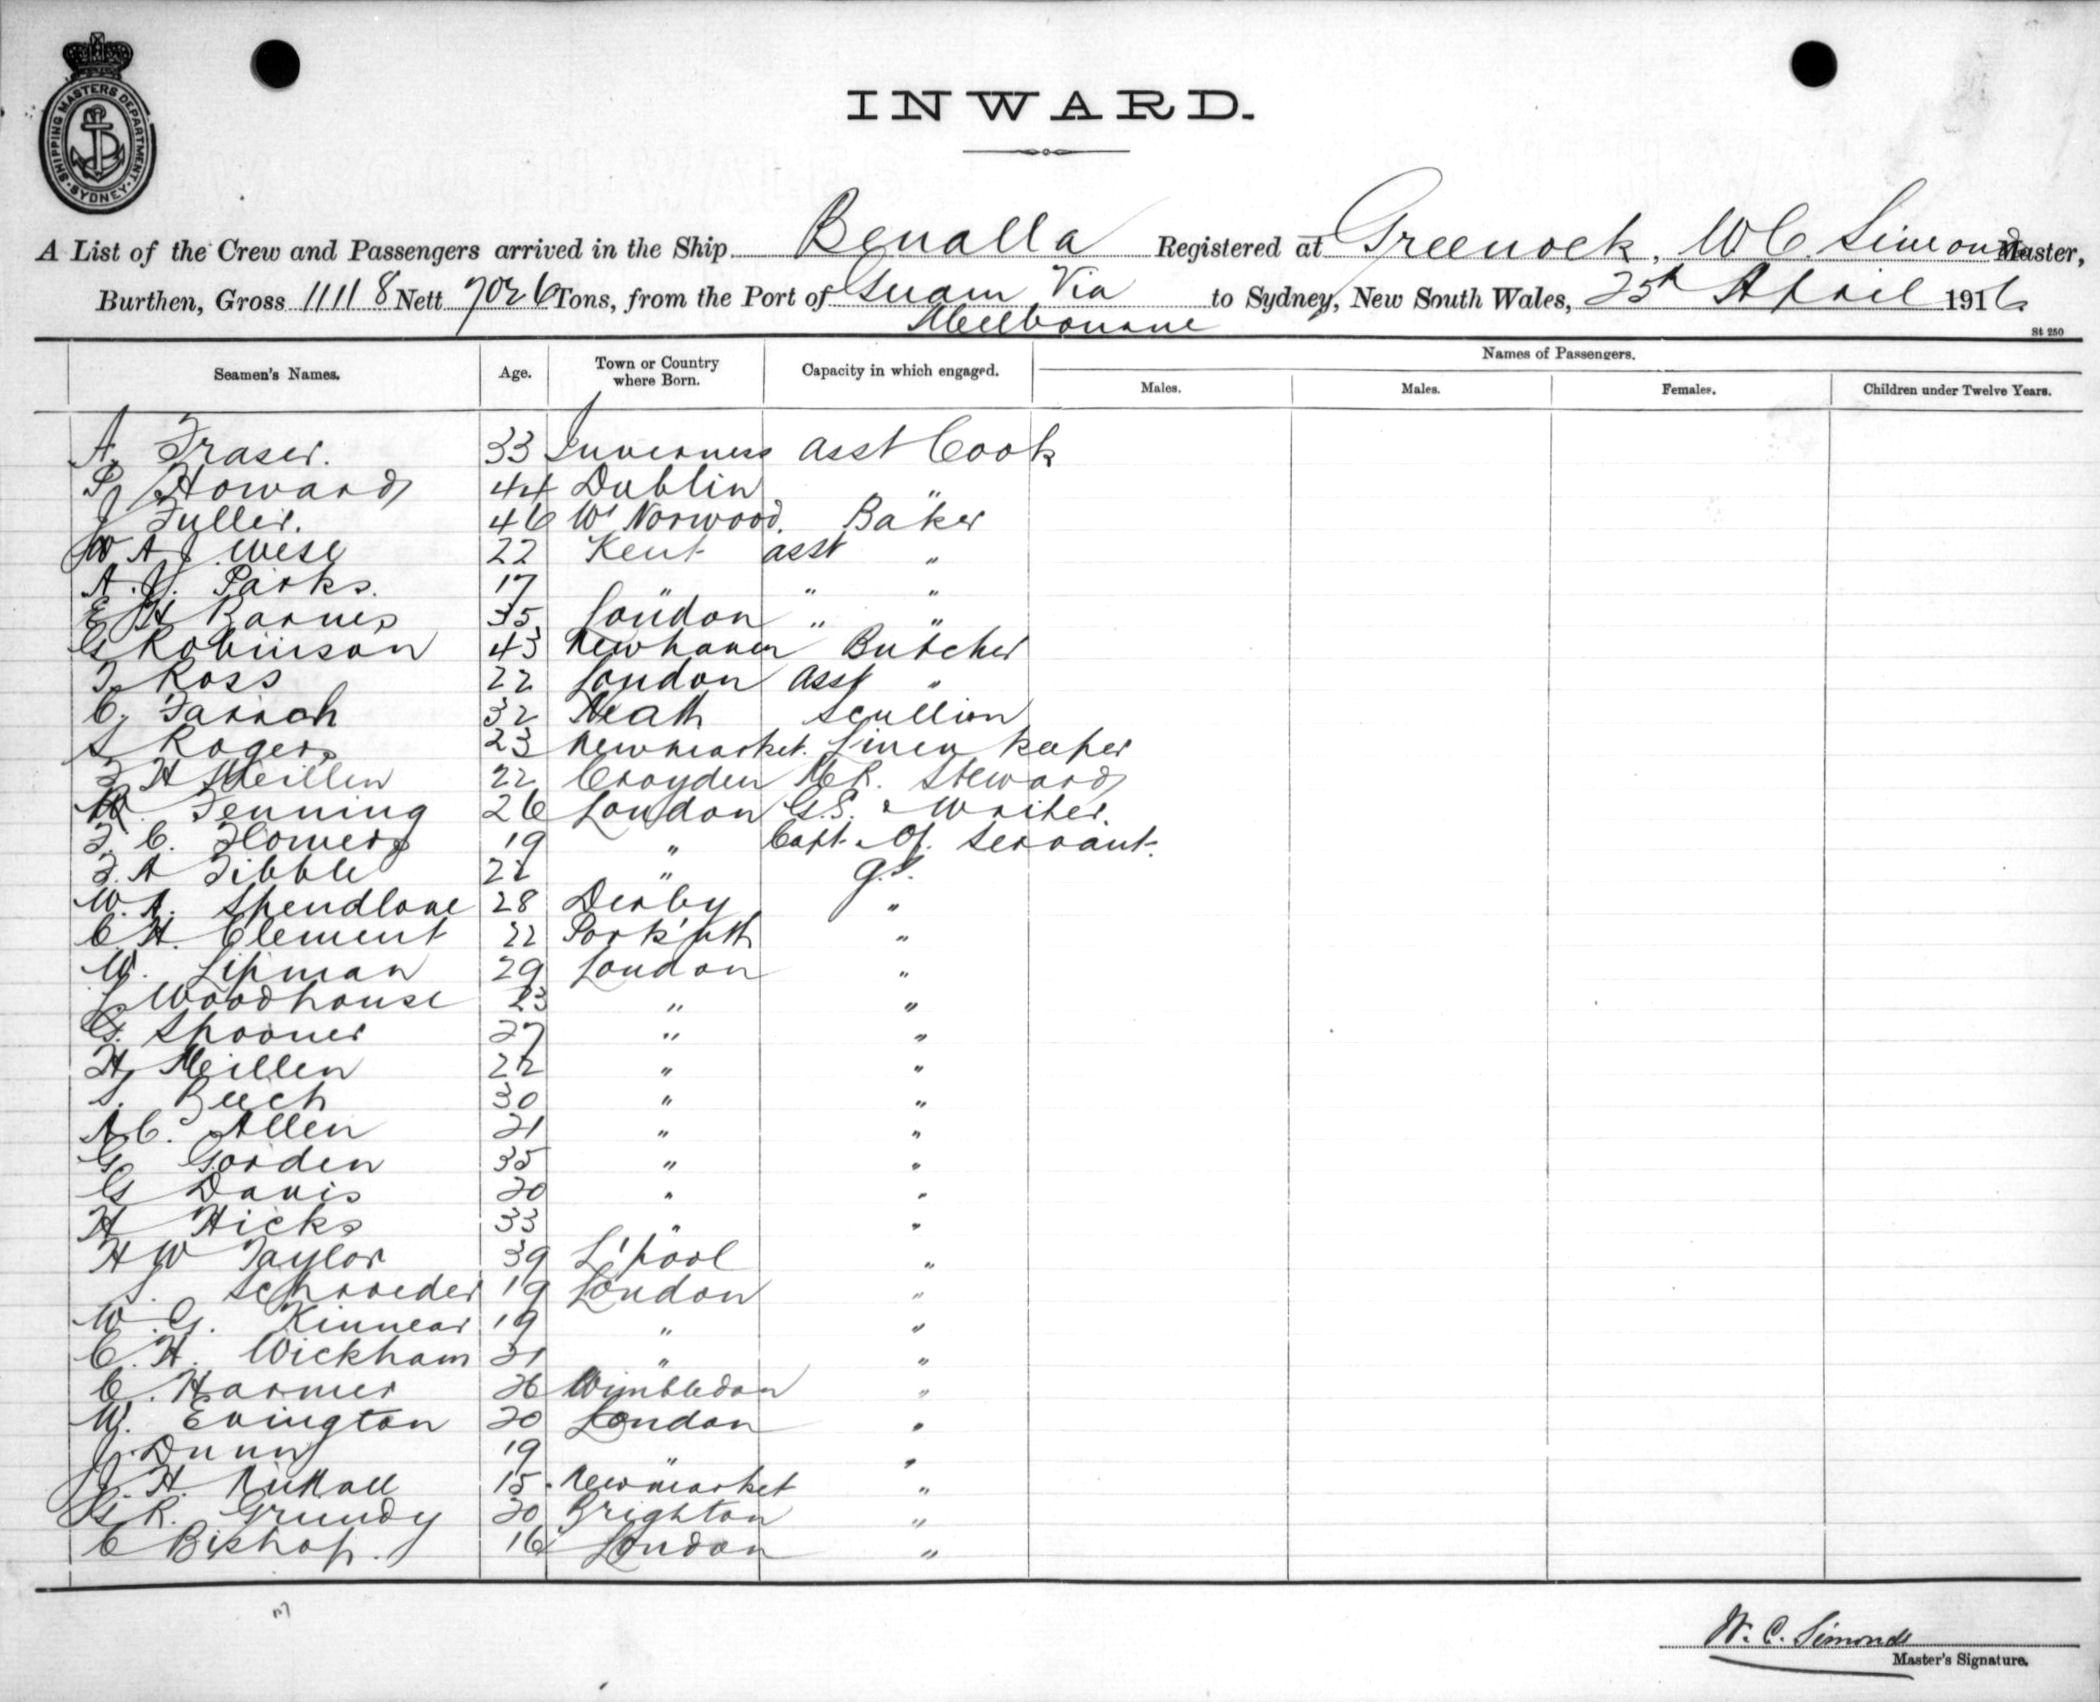 SHIPPING MASTERS DEPARTMENT. SYDNEY
INWARD.
A List of the Crew and Passengers arrived in the Ship Benalla Registered at Greenock, W C. Simonds Master,
Burthen, Gross 11118 Nett 7026 Tons, from the Port of Via Melbourne to Sydney, New South Wales, 25th April 1916
St 250
Seamen's Names. Age. Town or Country where Born. Capacity in which engaged. Names of Passengers.
Males. Males. Females. Children under Twelve Years.
A. Fraser. 33 Inverness asst Cook
P. Howard 44 Dublin "
J Fuller. 46 Wt Norwood. Baker
W A J Wise 22 Kent asst "
A. J. Parks. 17 " " "
E H Barnes 35 London " "
G Robinson 43 Newhaven Butcher
T. Ross 22 London asst "
C. Farrah 32 Neath Scullion
S Rogers 23 Newmarket. Linen keeper
F H Meillen 22 Croyden M R. Steward
W. Fenning 26 London G.S. & Writer.
F. C. Flowers 19 " Capt. & Of. Servant.
F. A Tibble 22 " g.s.
W. A. Spendlove 28 Derby "
C. H. Clement 22 "
W. Lipman 29 London "
J Woodhouse 23 " "
G. Spooner 27 " "
H. Meillen 22 " "
S. Beech 30 " "
A. C. Allen 21 " "
G. Gorden 35 " "
G Davis 20 " "
H Hicks 33 " "
H W Taylor 39 L'pool "
S. Schroeder 19 London "
W. G. Kinnear 19 " "
C. H. Wickham 21 " "
C. Harmer 26 Wimbledon "
W. Evington 20 London "
J. Dunn 19 " "
J. H. Nuttall 15 Newmarket "
G R. Grundy 20 Brighton "
C Bishop. 16 London "
W. C. Simonds
Master's Signature.